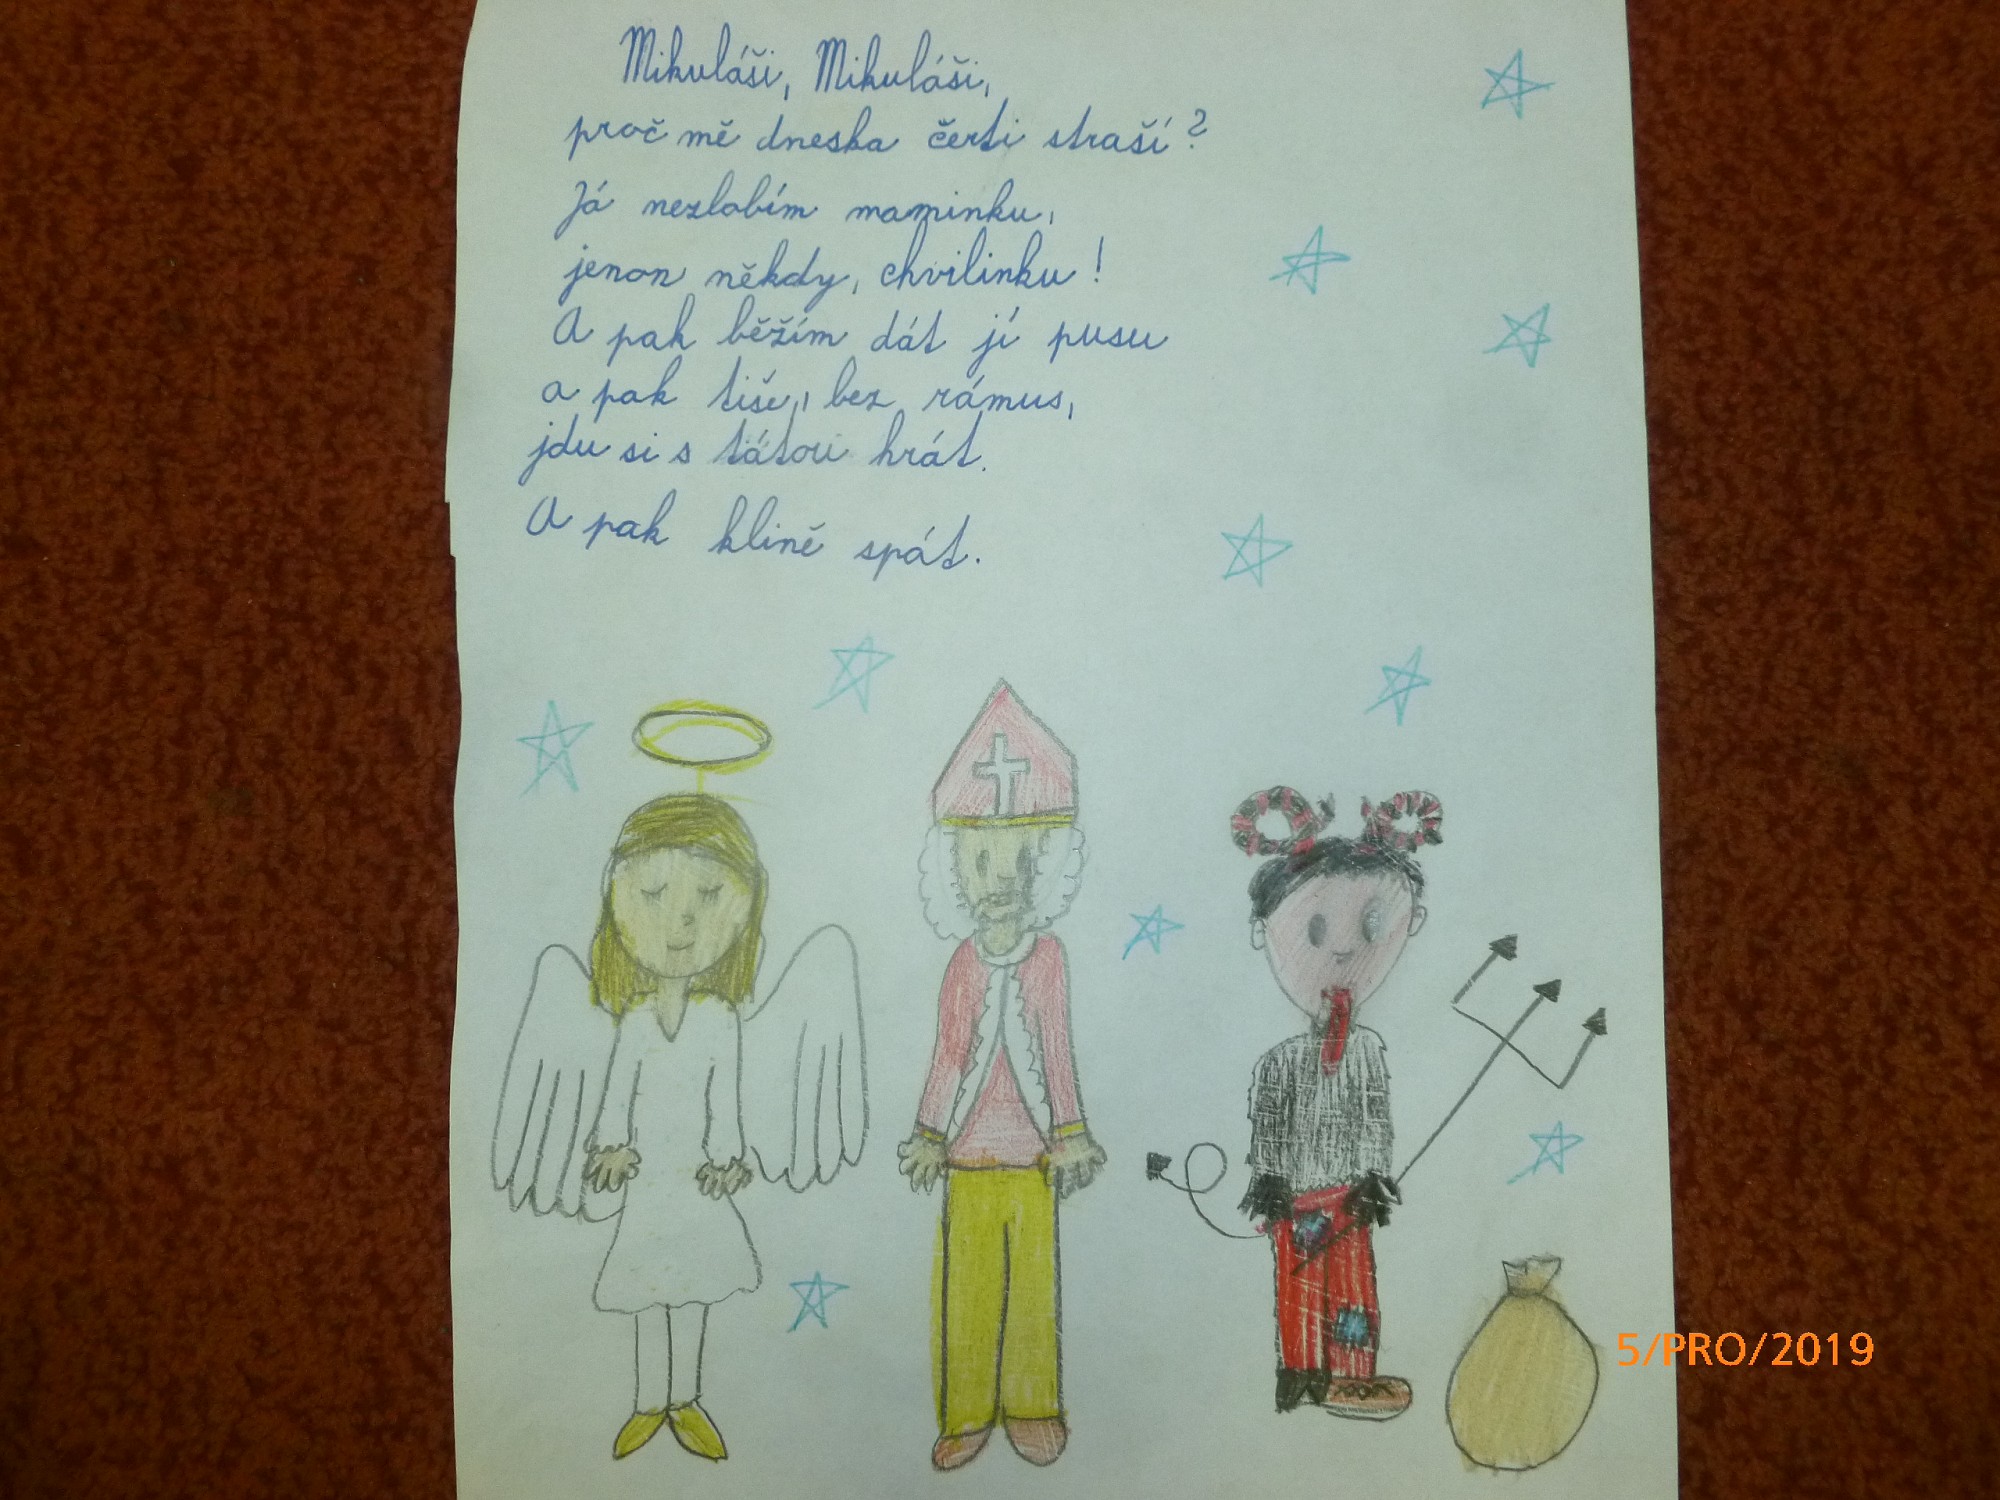 Mikuláši, Mikuláši,
proč mě dneska čerti straší?
Já nezlobím maminku,
jenon někdy, chvilinku!
A pak běžím dát jí pusu
a pak tiše, bez rámus,
jdu si s tátou hrát.
A pak klině spát.
5/PRO/2019